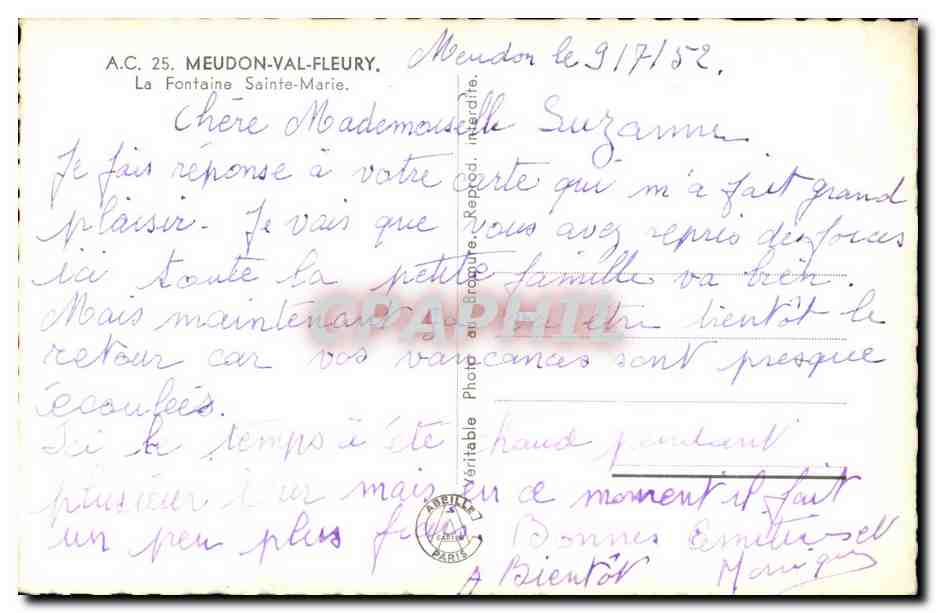 A.C. 25. MEUDON-VAL-FLEURY.
La Fontaine Sainte-Marie.
Meudon le 9/7/52.
Chère Mademoiselle Suzanne
Je fais réponse à votre carte qui m'a fait grand
plaisir. Je vais que vous avez repris des forces
ici toute la petite famille va bien.
Mais maintenant ça va être bientôt le
retour car vos vancances sont presque
écoulées.
Ici le temps à été chaud pendant
plusieur jour mais en ce moment il fait
un peu plus frais. Bonnes Amitiés et
A Bientôt Monique
Véritable Photo au Bromure. Reprod. interdite.
ABEILLE
CARTES
PARIS
CPAPHIL